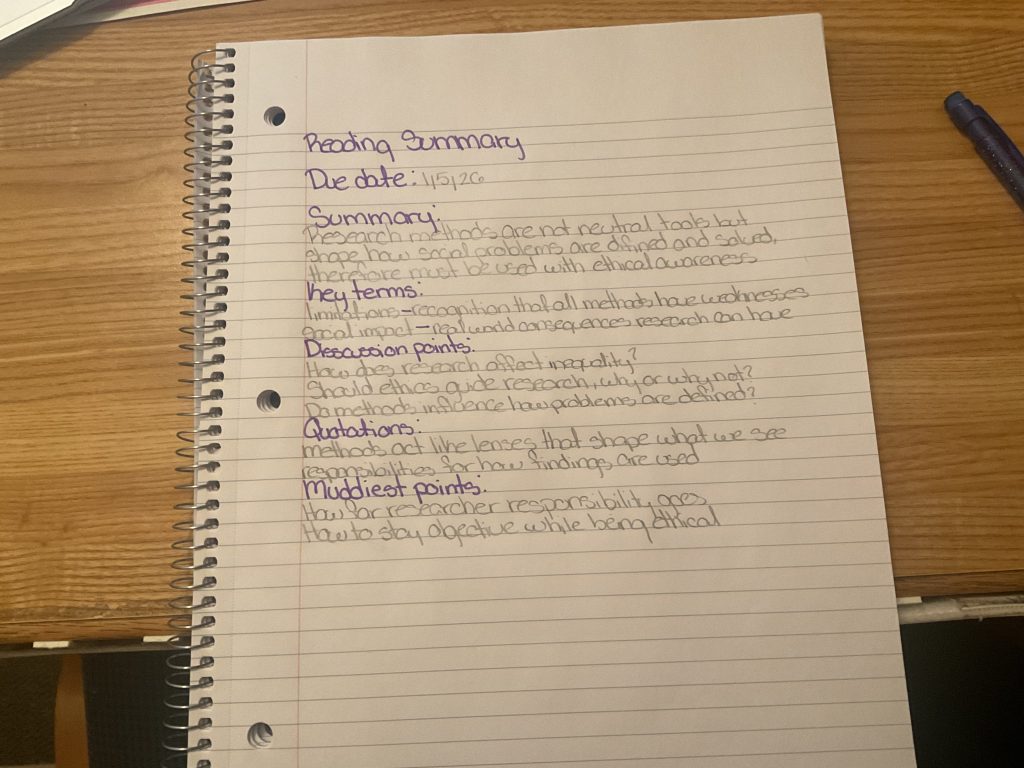 Reading Summary
Due date: 1/5/26
Summary:
Research methods are not neutral tools but
shape how social problems are difined and solved,
therefore must be used with ethical awareness
Key terms:
limitations-recognition that all methods have weaknesses
social impact-real world consequences research can have
Descussion points:
How does research affect inequality?
Should ethics guide research, why or why not?
Do methods influence how problems are defined?
Quotations:
methods act like lenses that shape what we see
responsibilities for how findings are used
Muddiest points:
How far researcher responsibility goes
How to stay objective while being ethical